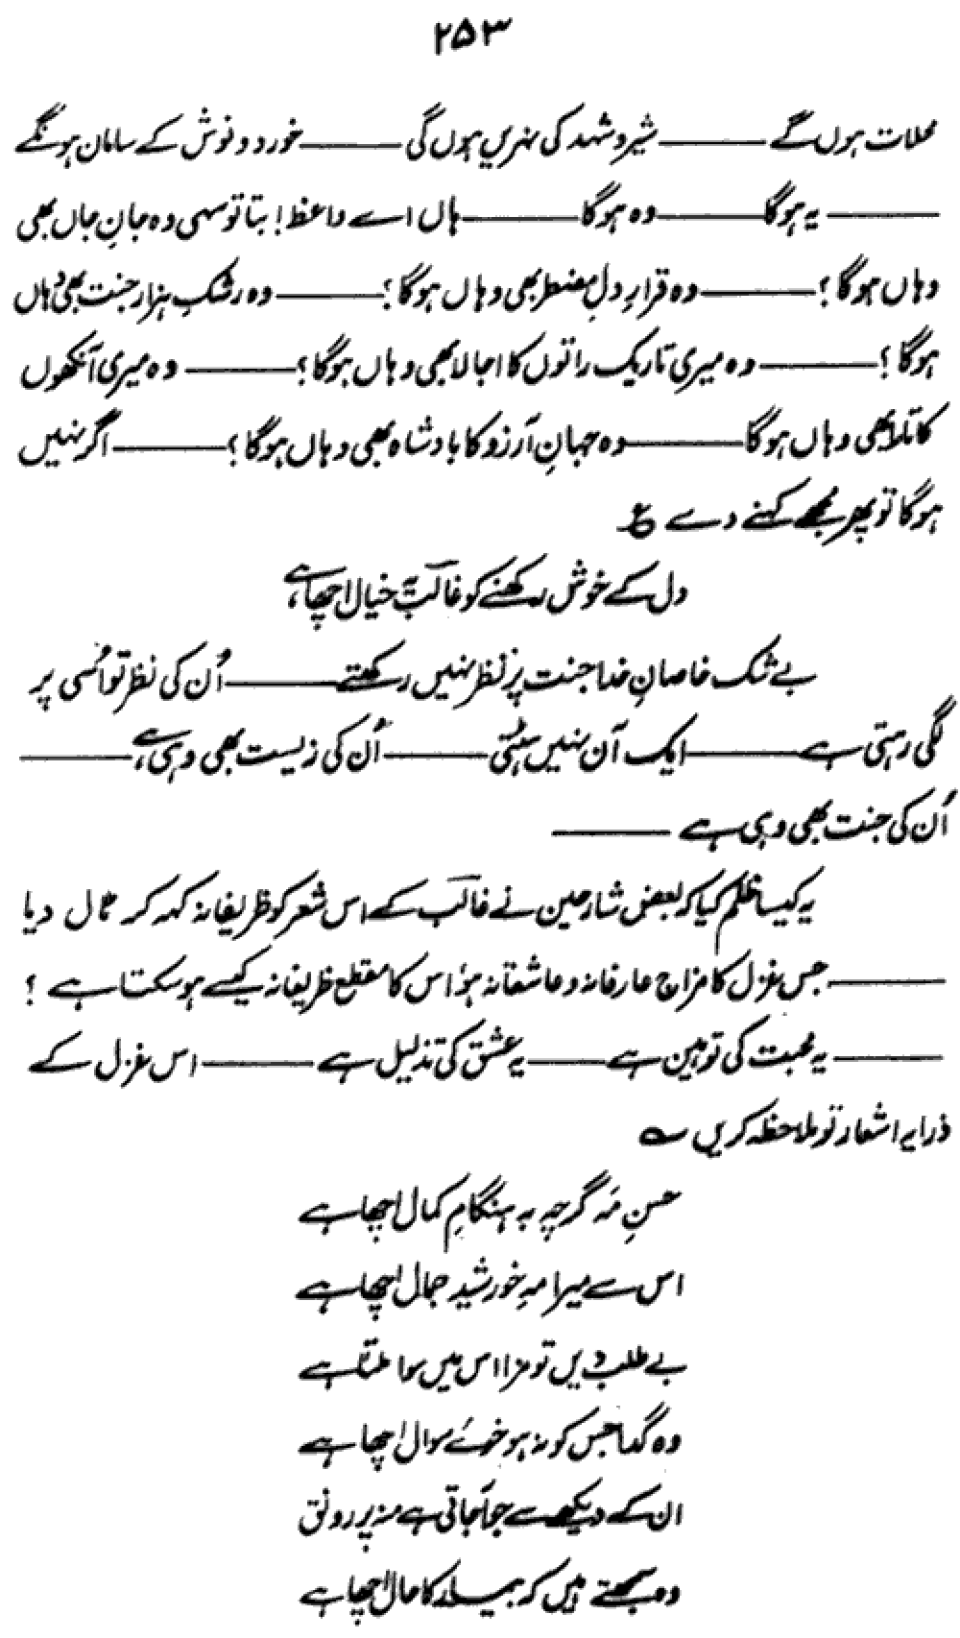 ۲۵۳
محلات ہوں گے ——— شیر و شہد کی نہریں ہوں گی ——— خورد و نوش کے سامان ہونگے
——— یہ ہوگا ——— وہ ہوگا ——— ہاں اے واعظ! بتا تو سہی وہ جانِ جاں بھی
وہاں ہوگا؟ ——— وہ قرارِ دلِ مضطر بھی وہاں ہوگا؟ ——— وہ رشکِ ہزار جنت بھی وہاں
ہوگا؟ ——— وہ میری تاریک راتوں کا اجالا بھی وہاں ہوگا؟ ——— وہ میری آنکھوں
کا تارا بھی وہاں ہوگا ——— وہ جہانِ آرزو کا بادشاہ بھی وہاں ہوگا؟ ——— اگر نہیں
ہوگا تو پھر مجھے کہنے دے ع
دل کے خوش رکھنے کو غالبؔ یہ خیال اچھا ہے
بے شک خاصانِ خدا جنت پر نظر نہیں رکھتے ——— اُن کی نظر تو اُسی پر
لگی رہتی ہے ——— ایک آن نہیں ہٹتی ——— اُن کی زیست بھی وہی ہے ———
اُن کی جنت بھی وہی ہے ———
یہ کیسا ظلم کیا کہ بعض شارحین نے غالبؔ کے اس شعر کو ظریفانہ کہہ کر ٹال دیا
——— جس غزل کا مزاج عارفانہ و عاشقانہ ہو، اس کا مقطع ظریفانہ کیسے ہوسکتا ہے؟
——— یہ محبت کی توہین ہے ——— یہ عشق کی تذلیل ہے ——— اس غزل کے
ذرا یہ اشعار تو ملاحظہ کریں ؎
حسنِ مہ گرچہ بہ ہنگامِ کمال اچھا ہے
اس سے میرا مہِ خورشید جمال اچھا ہے
بے طلب دیں تو مزا اس میں سوا ملتا ہے
وہ گدا جس کو نہ ہو خوئے سوال اچھا ہے
ان کے دیکھے سے جو آجاتی ہے منہ پر رونق
وہ سمجھتے ہیں کہ بیمار کا حال اچھا ہے